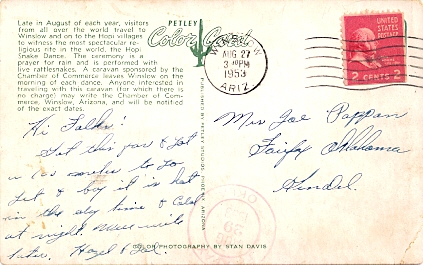 Late in August of each year, visitors
from all over the world travel to
Winslow and on to the Hopi villages
to witness the most spectacular re-
ligious rite in the world, the Hopi
Snake Dance. The ceremony is a
prayer for rain and is performed with
live rattlesnakes. A caravan sponsored by the
Chamber of Commerce leaves Winslow on the
morning of each dance. Anyone interested in
traveling with this caravan (for which there
is no charge) may write the Chamber of Com-
merce, Winslow, Arizona, and will be notified
of the exact dates.
PETLEY
Color Card
AUG 27
3 PM
1953
ARIZ
UNITED
STATES
POSTAGE
2 CENTS 2
Hi Folks!
Got this far & got
to go
yet & boy it is hot
in the day time & cold
at night.
later. Hazel &
PUBLISHED BY PETLEY STUDIOS, PHOENIX, ARIZONA
Mrs Joe Pappan
Fairfax Oklahoma
COLOR PHOTOGRAPHY BY STAN DAVIS